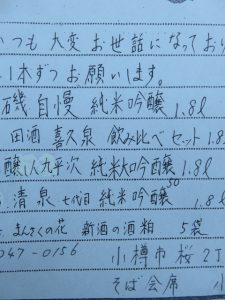 いつも 大変 お世話になっており
1本ずつ お願いします。
磯自慢 純米吟醸 1.8ℓ
田酒 喜久泉 飲み比べセット 1.8
醸し人九平次 純米大吟醸 1.8ℓ
清泉 七代目 純米吟醸 50 1.8ℓ
まんさくの花 新酒の酒粕 5袋
047-0156 小樽市 桜 2丁
そば会席 小